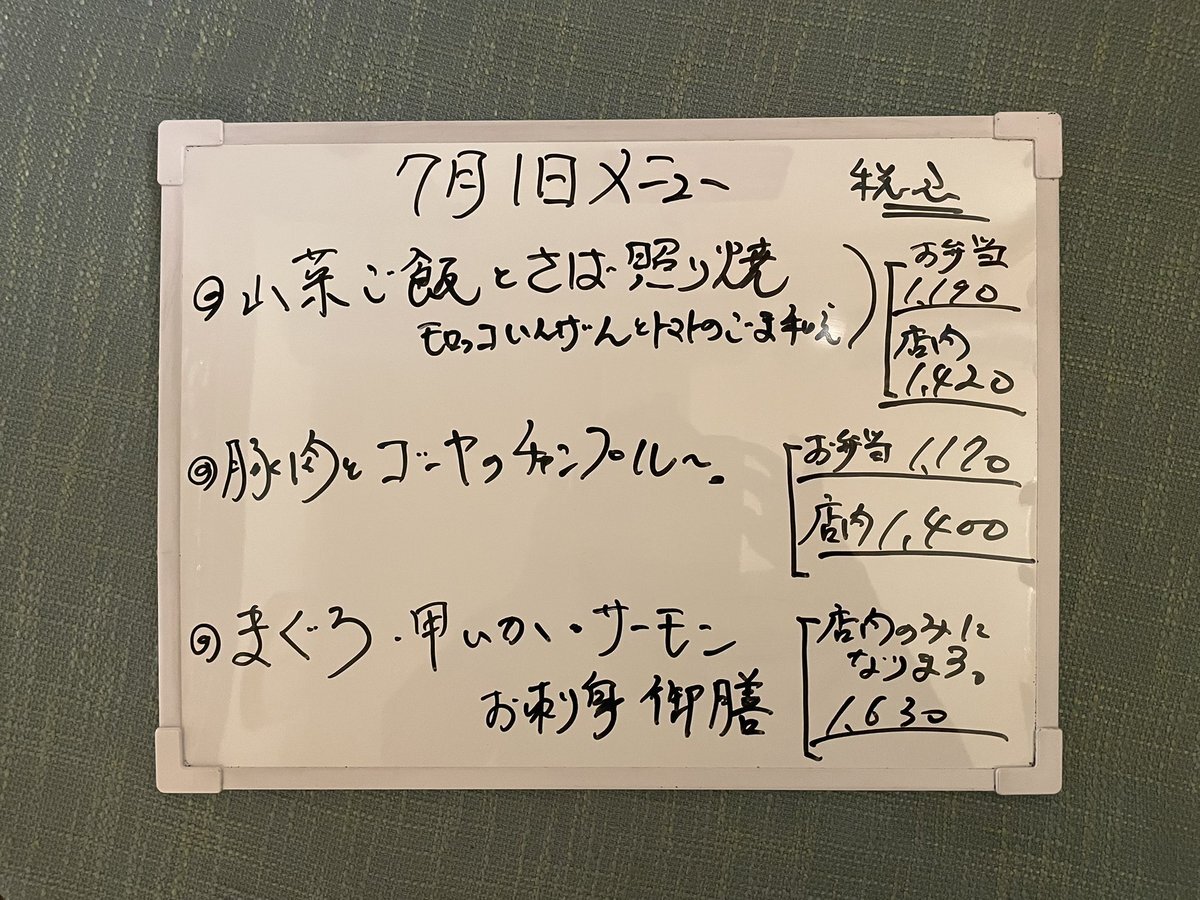 7月1日メニュー 税込
◎山菜ご飯とさば照り焼
モロッコいんげんとトマトのごま和え
お弁当
1,190
店内
1,420
◎豚肉とゴーヤのチャンプル〜。
お弁当 1,170
店内 1,400
◎まぐろ・甲いか・サーモン
お刺身 御膳
店内のみに
なります。
1,630